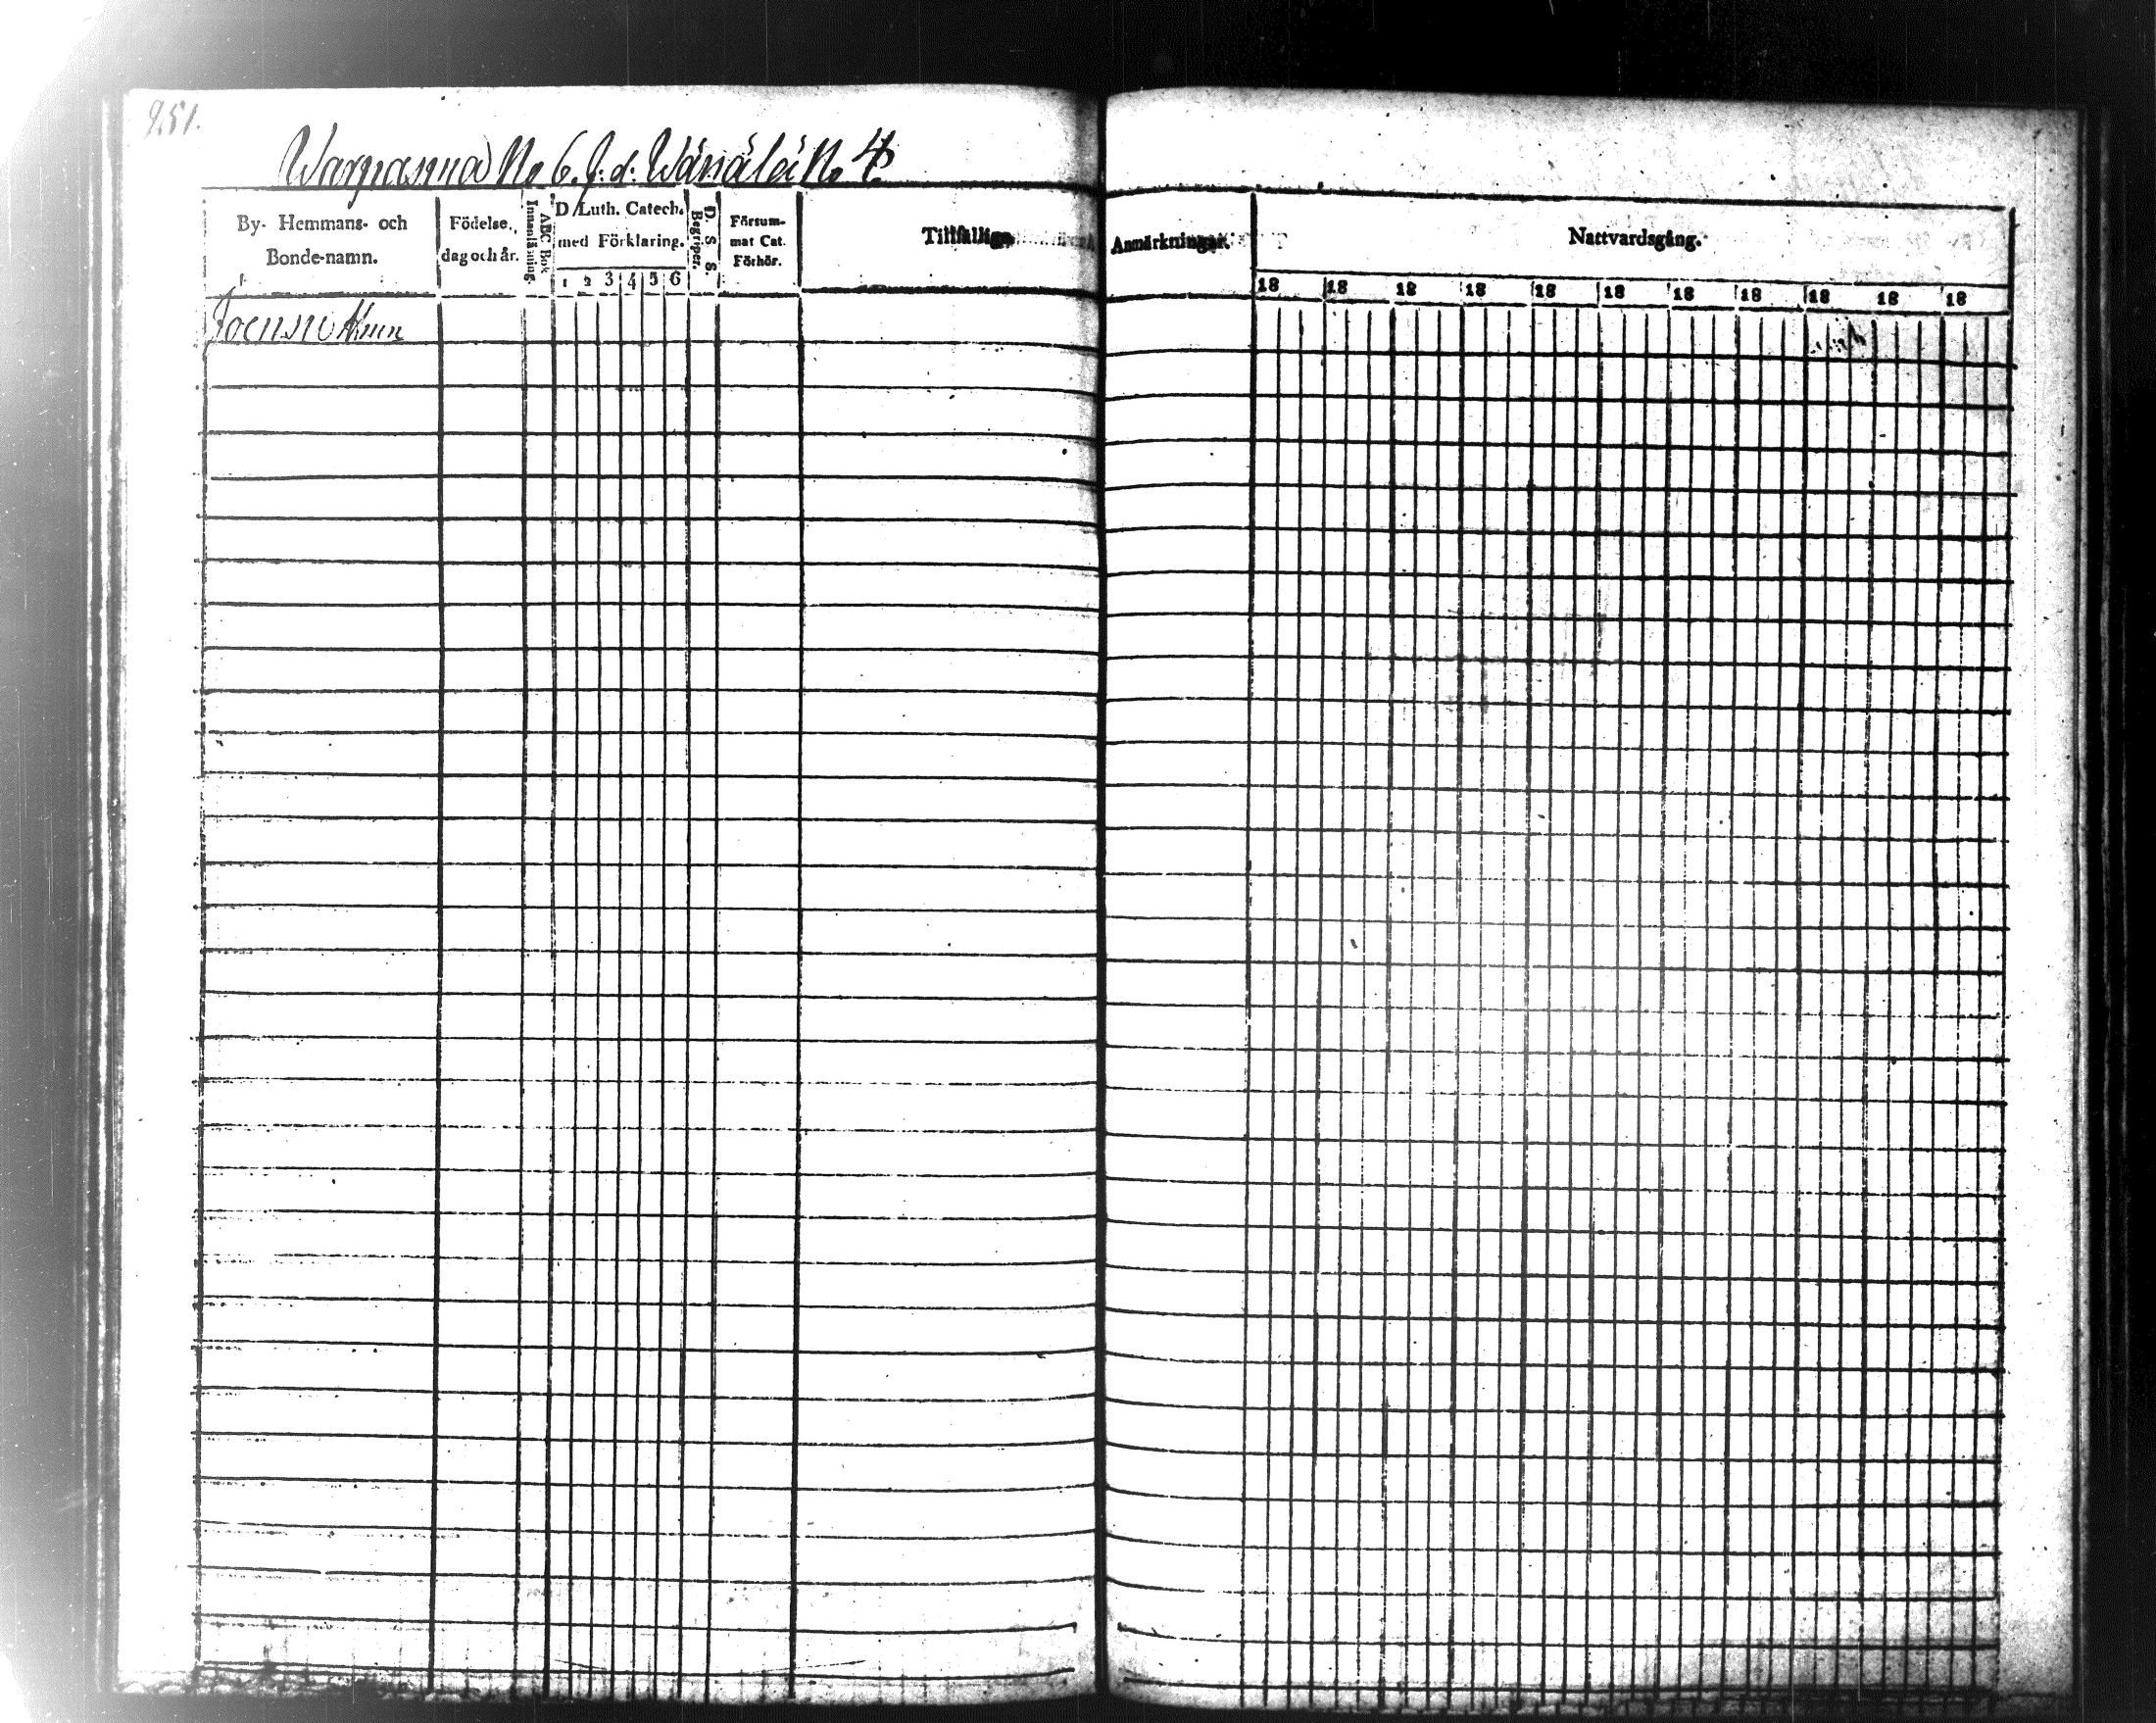 251.
Warpanna No 6. f. d. Wänälä No 4.
By- Hemmans- och Bonde-namn.
Födelse. dag och år.
ABC Bok
Innanläsning.
D. Luth. Catech. med Förklaring.
1 2 3 4 5 6
D. S. S.
Begriper.
Försummat Cat. Förhör.
Tillfällige
Anmärkningar.
Nattvardsgång.
18 18 18 18 18 18 18 18 18 18 18
Joensuu